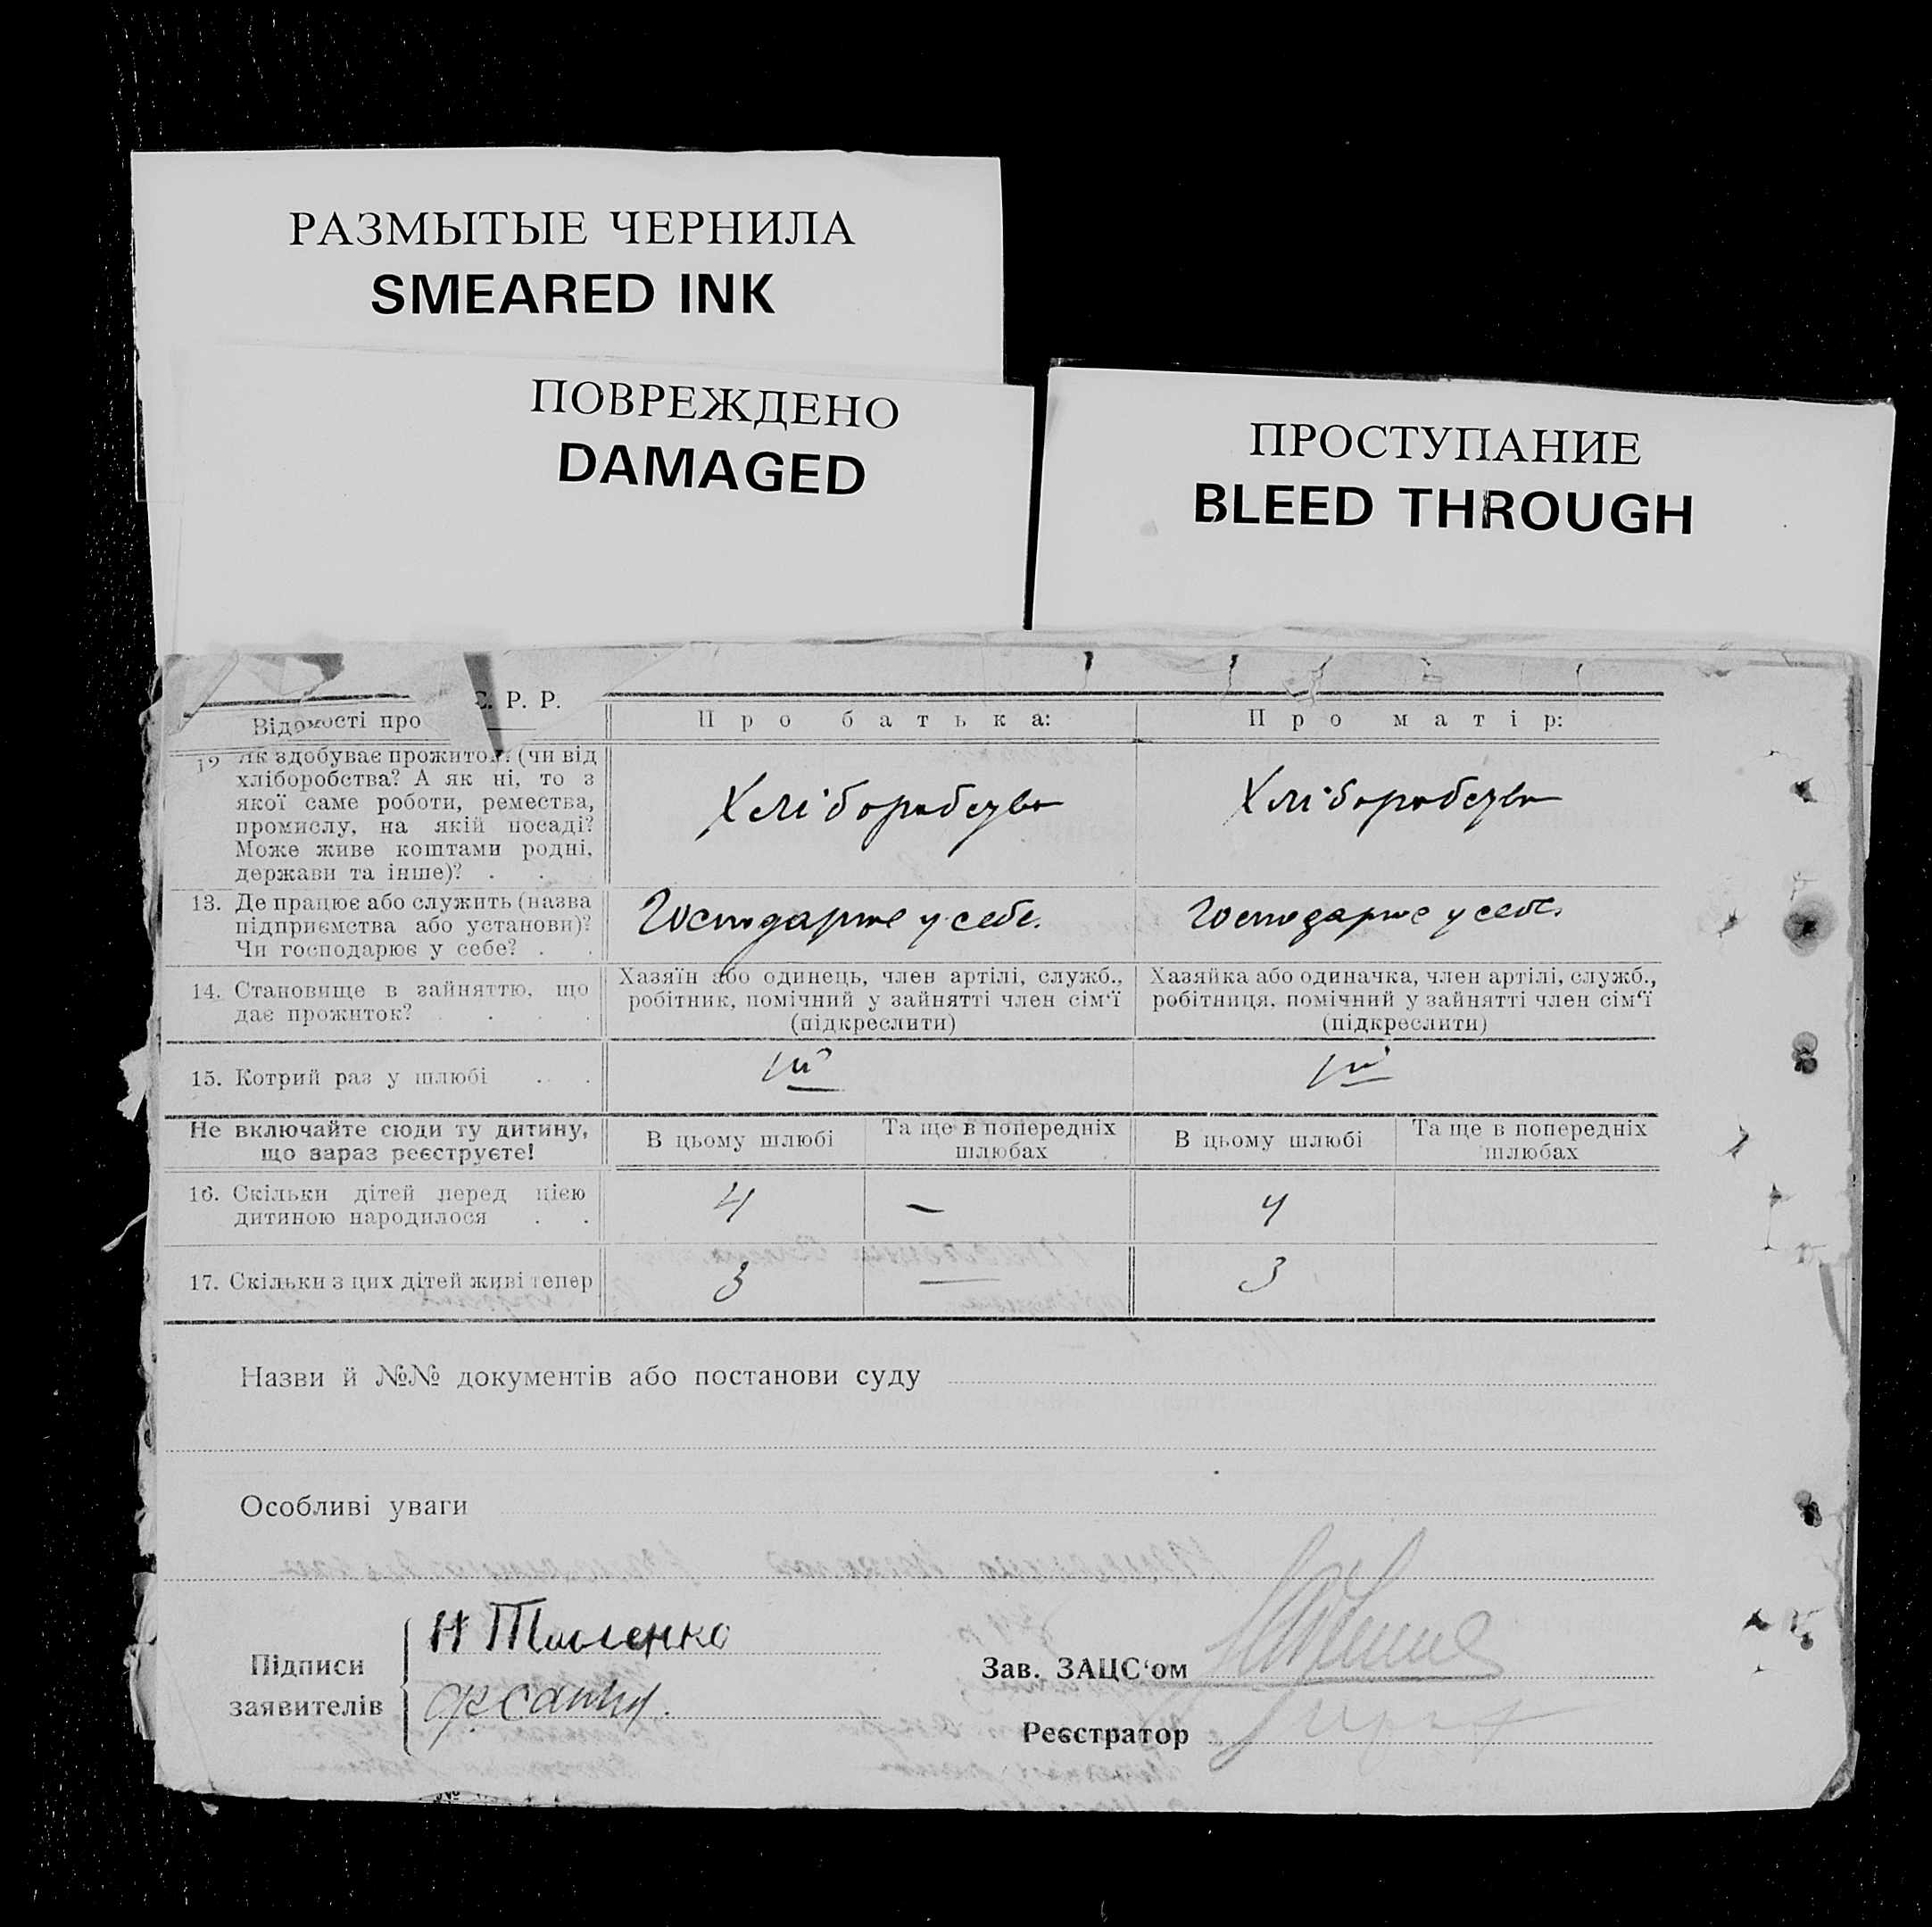 РАЗМЫТЫЕ ЧЕРНИЛА
SMEARED INK
ПОВРЕЖДЕНО
DAMAGED
ПРОСТУПАНИЕ
BLEED THROUGH
С. Р. Р.
Відомості про
Про батька:
Про матір:
12. Як здобуває прожиток (чи від
хліборобства? А як ні, то з
якої саме роботи, ремества,
промислу, на якій посаді?
Може живе коштами родні,
держави та інше)? . .
Хліборобство
Хліборобство
13. Де працює або служить (назва
підприємства або установи)?
Чи господарює у себе? . .
Господарює у себе.
Господарює у себе.
14. Становище в зайняттю, що
дає прожиток? . . . .
Хазяїн або одинець, член артілі, служб.,
робітник, помічний у зайнятті член сім‘ї
(підкреслити)
Хазяйка або одиначка, член артілі, служб.,
робітниця, помічний у зайнятті член сім‘ї
(підкреслити)
15. Котрий раз у шлюбі . . .
1й
1й
Не включайте сюди ту дитину,
що зараз реєструєте!
В цьому шлюбі
Та ще в попередніх
шлюбах
В цьому шлюбі
Та ще в попередніх
шлюбах
16. Скільки дітей перед цією
дитиною народилося . .
4
—
4
17. Скільки з цих дітей живі тепер
3
—
3
Назви й №№ документів або постанови суду
Особливі уваги
Підписи
заявителів
Н
Зав. ЗАЦС‘ом
Реєстратор